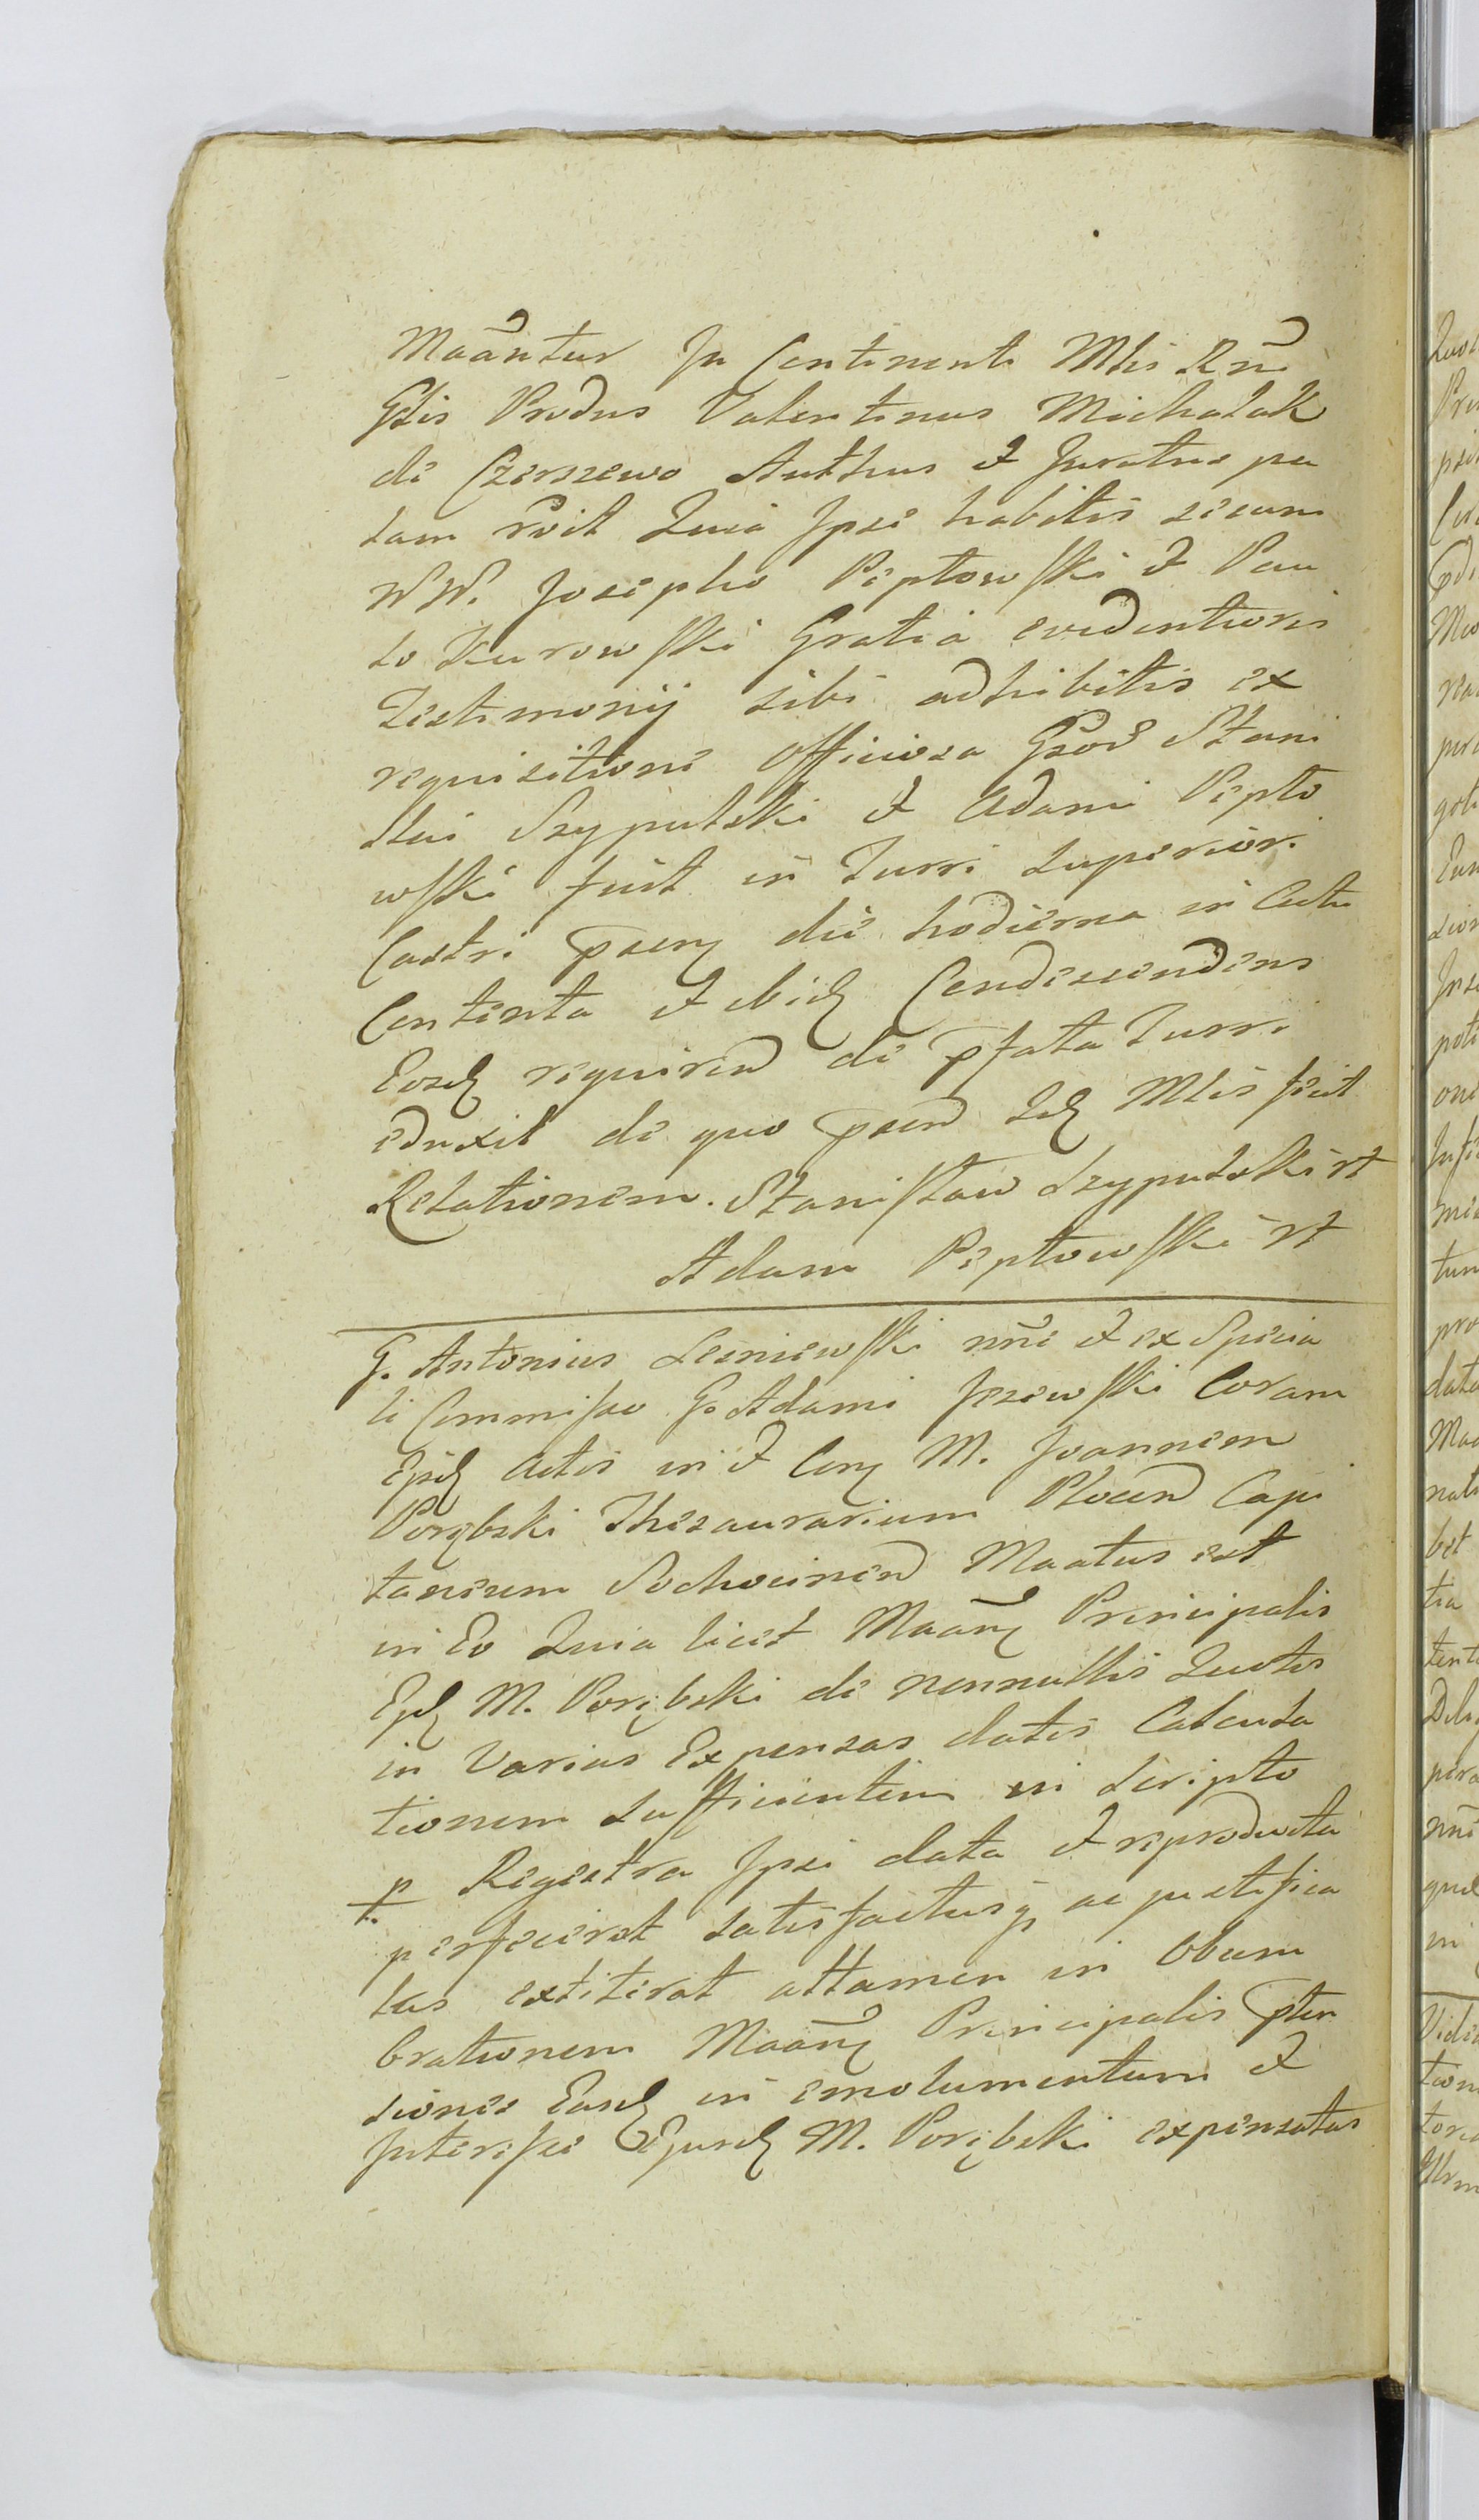 Maãntur In Continenti Mlis Rñi
Gdis Produs Valentinus Michalak
de Czerszewo Authus et Juratus pa
lam rvit Quia Ipse habitis secum
NN. Josepho Peptowski et Pau
lo Kurowski Gratia evidentioris
Testimonij sibi adhibitis ex
requisitione Officiosa Gsod Stani
slai Szyputski et Adami Pepto
wski fuit in Turri superiori
Castri psen die hodierna in Actu
Contenta et ibid Condescendens
Eosd requiren de pfata Turri
eduxit de quo psen Id Mlis fecit
Relationem. Stanisław Szyputski rt
Adam Peptowski rt
G. Antonius Lesniewski nñe et ex Specia
li Commisso G. Adami Jezewski Coram
Eisd Actis in et Con M. Joannem
Porębski Thesaurarium Plocen Capi
taneum Sochocinen Maatus est
in Eo Quia licet Maan Principalis
Ejd M. Porębski de nonnullis Quotis
in Varias Expensas datis Calcula
tionem sufficientem in scripto
p Regestra Ipsi data et reproducta
perfecerat satisfactusq ac justifica
tus extiterat attamen in Obum
brationem Maan Principalis pten
siones Easd in emolumentum et
Interesse Ejusd M. Porębski expensatas